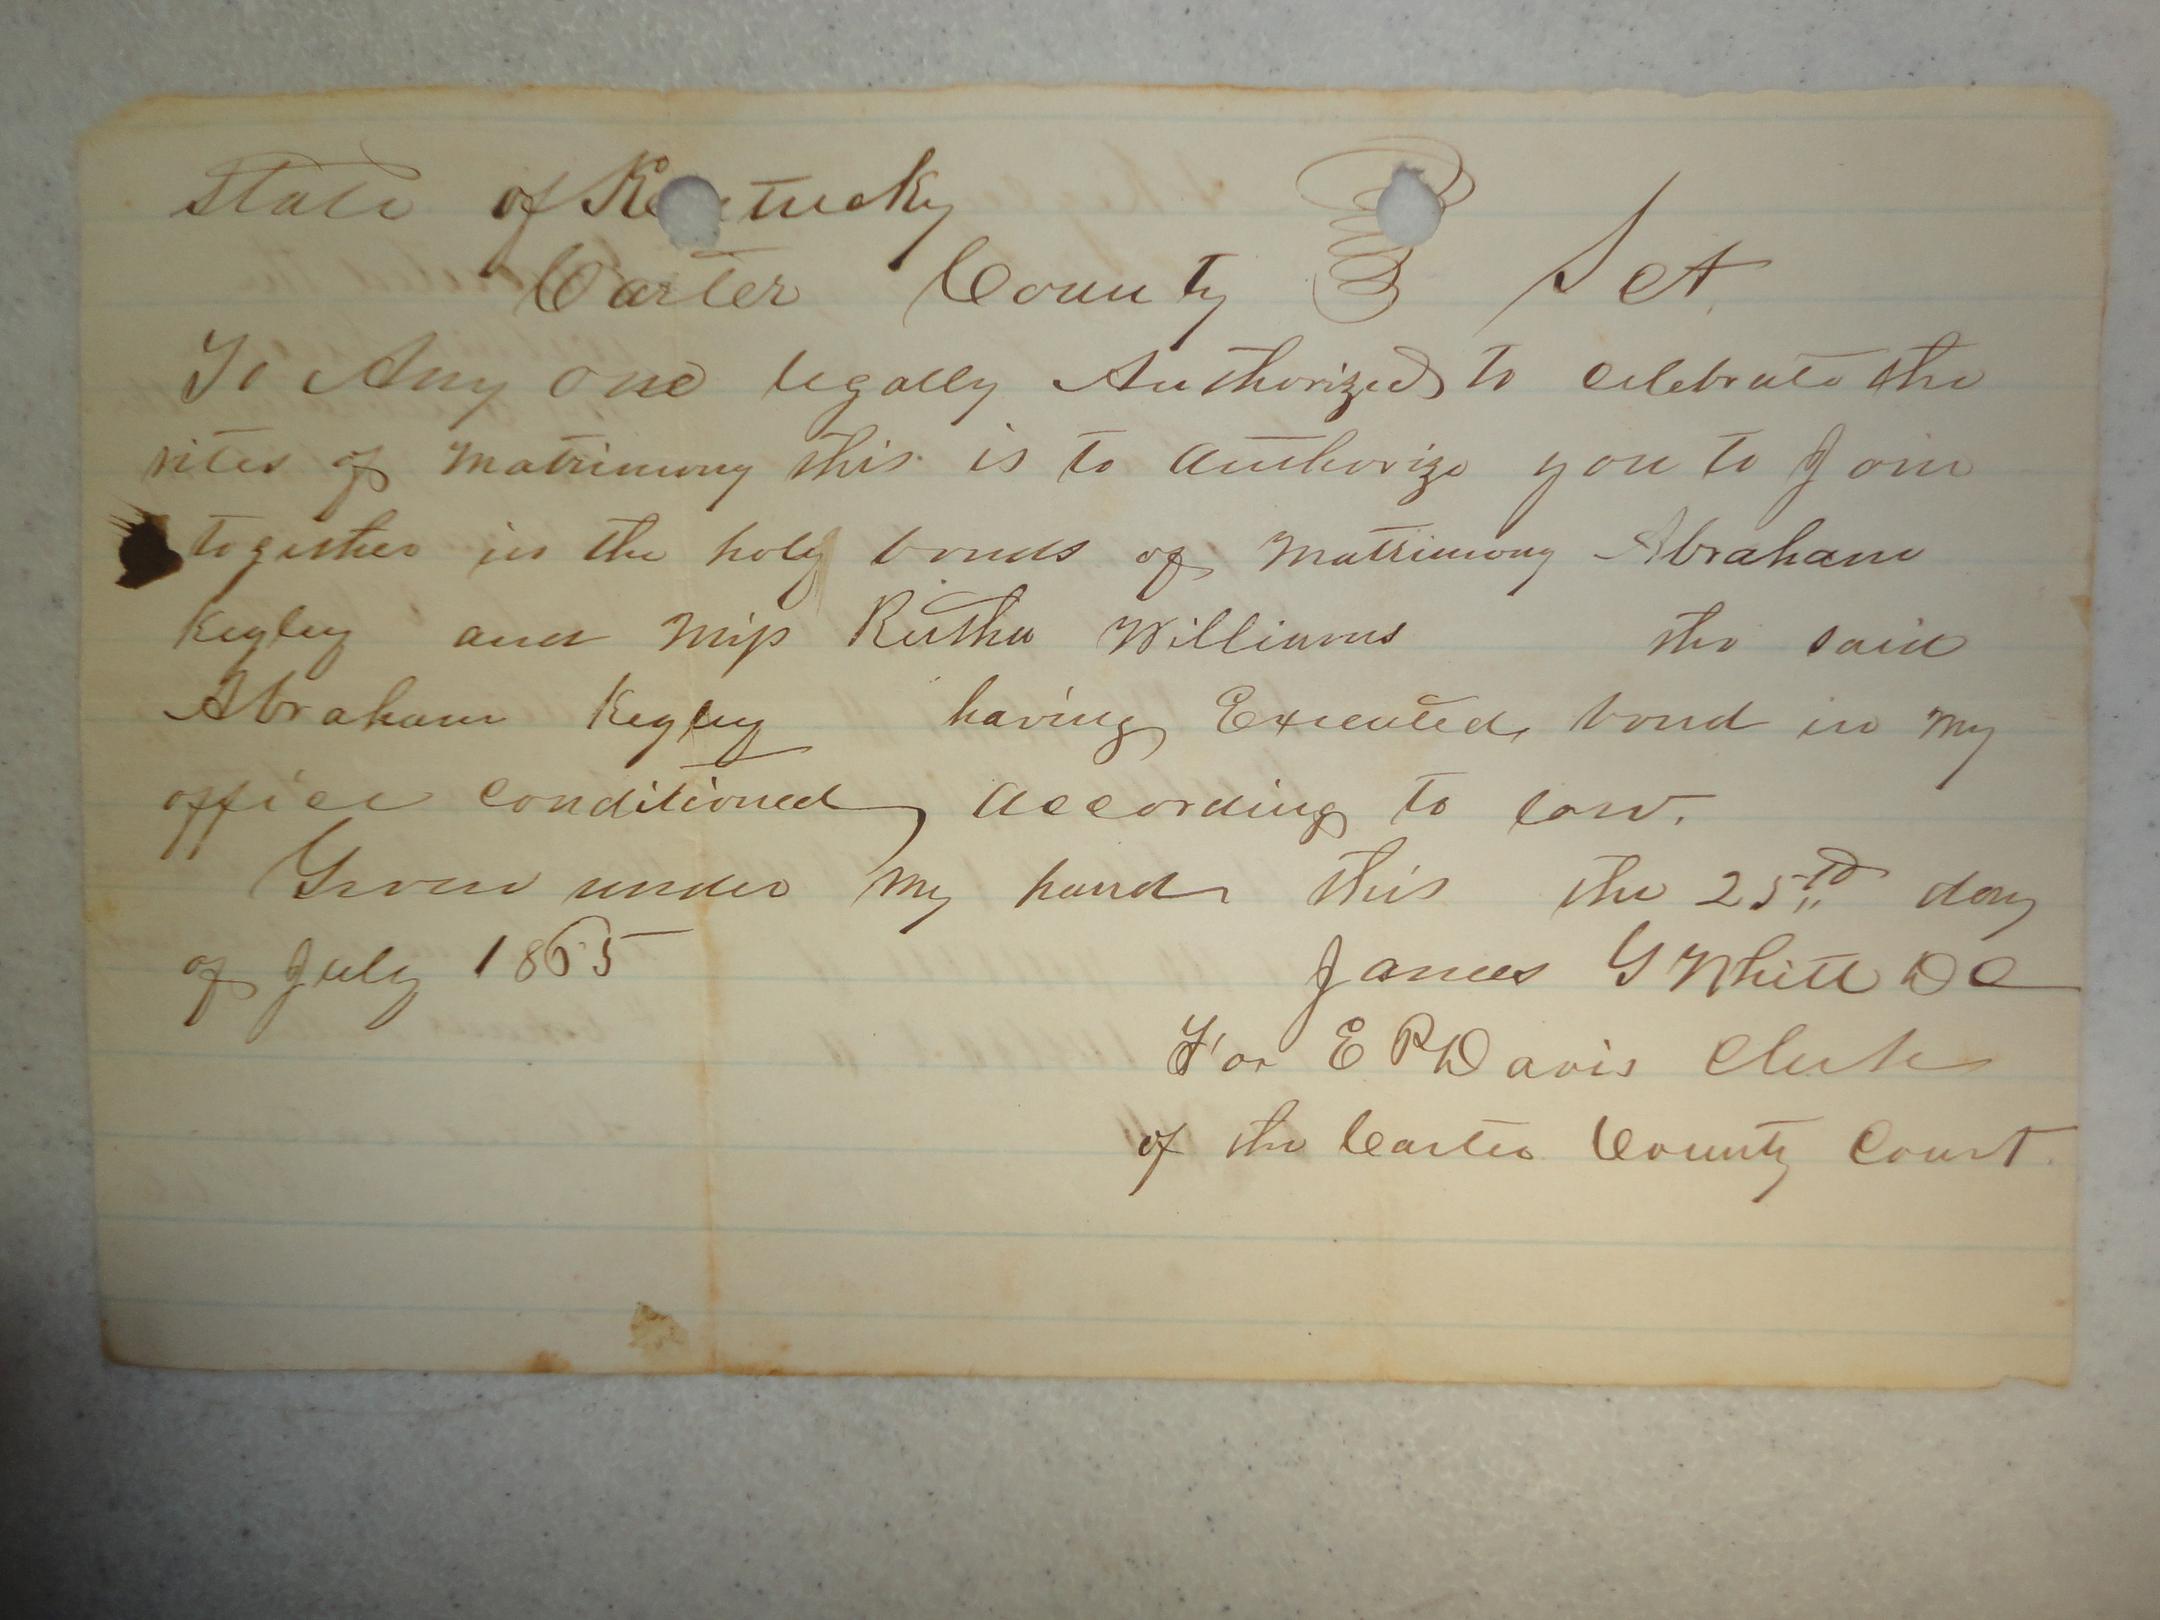 State of Kentucky
Carter County Sct.
To Any one legally Authorized to celebrate the
rites of Matrimony this is to authorize you to Join
together in the holy bonds of Matrimony Abraham
Kegley and Miss Rutha Williams the said
Abraham Kegley having Executed bond in my
office conditioned according to law.
Given under my hand this the 25th day
of July 1865 James G Whitt DC
For E P Davis Clerk
of the Carter County Court.